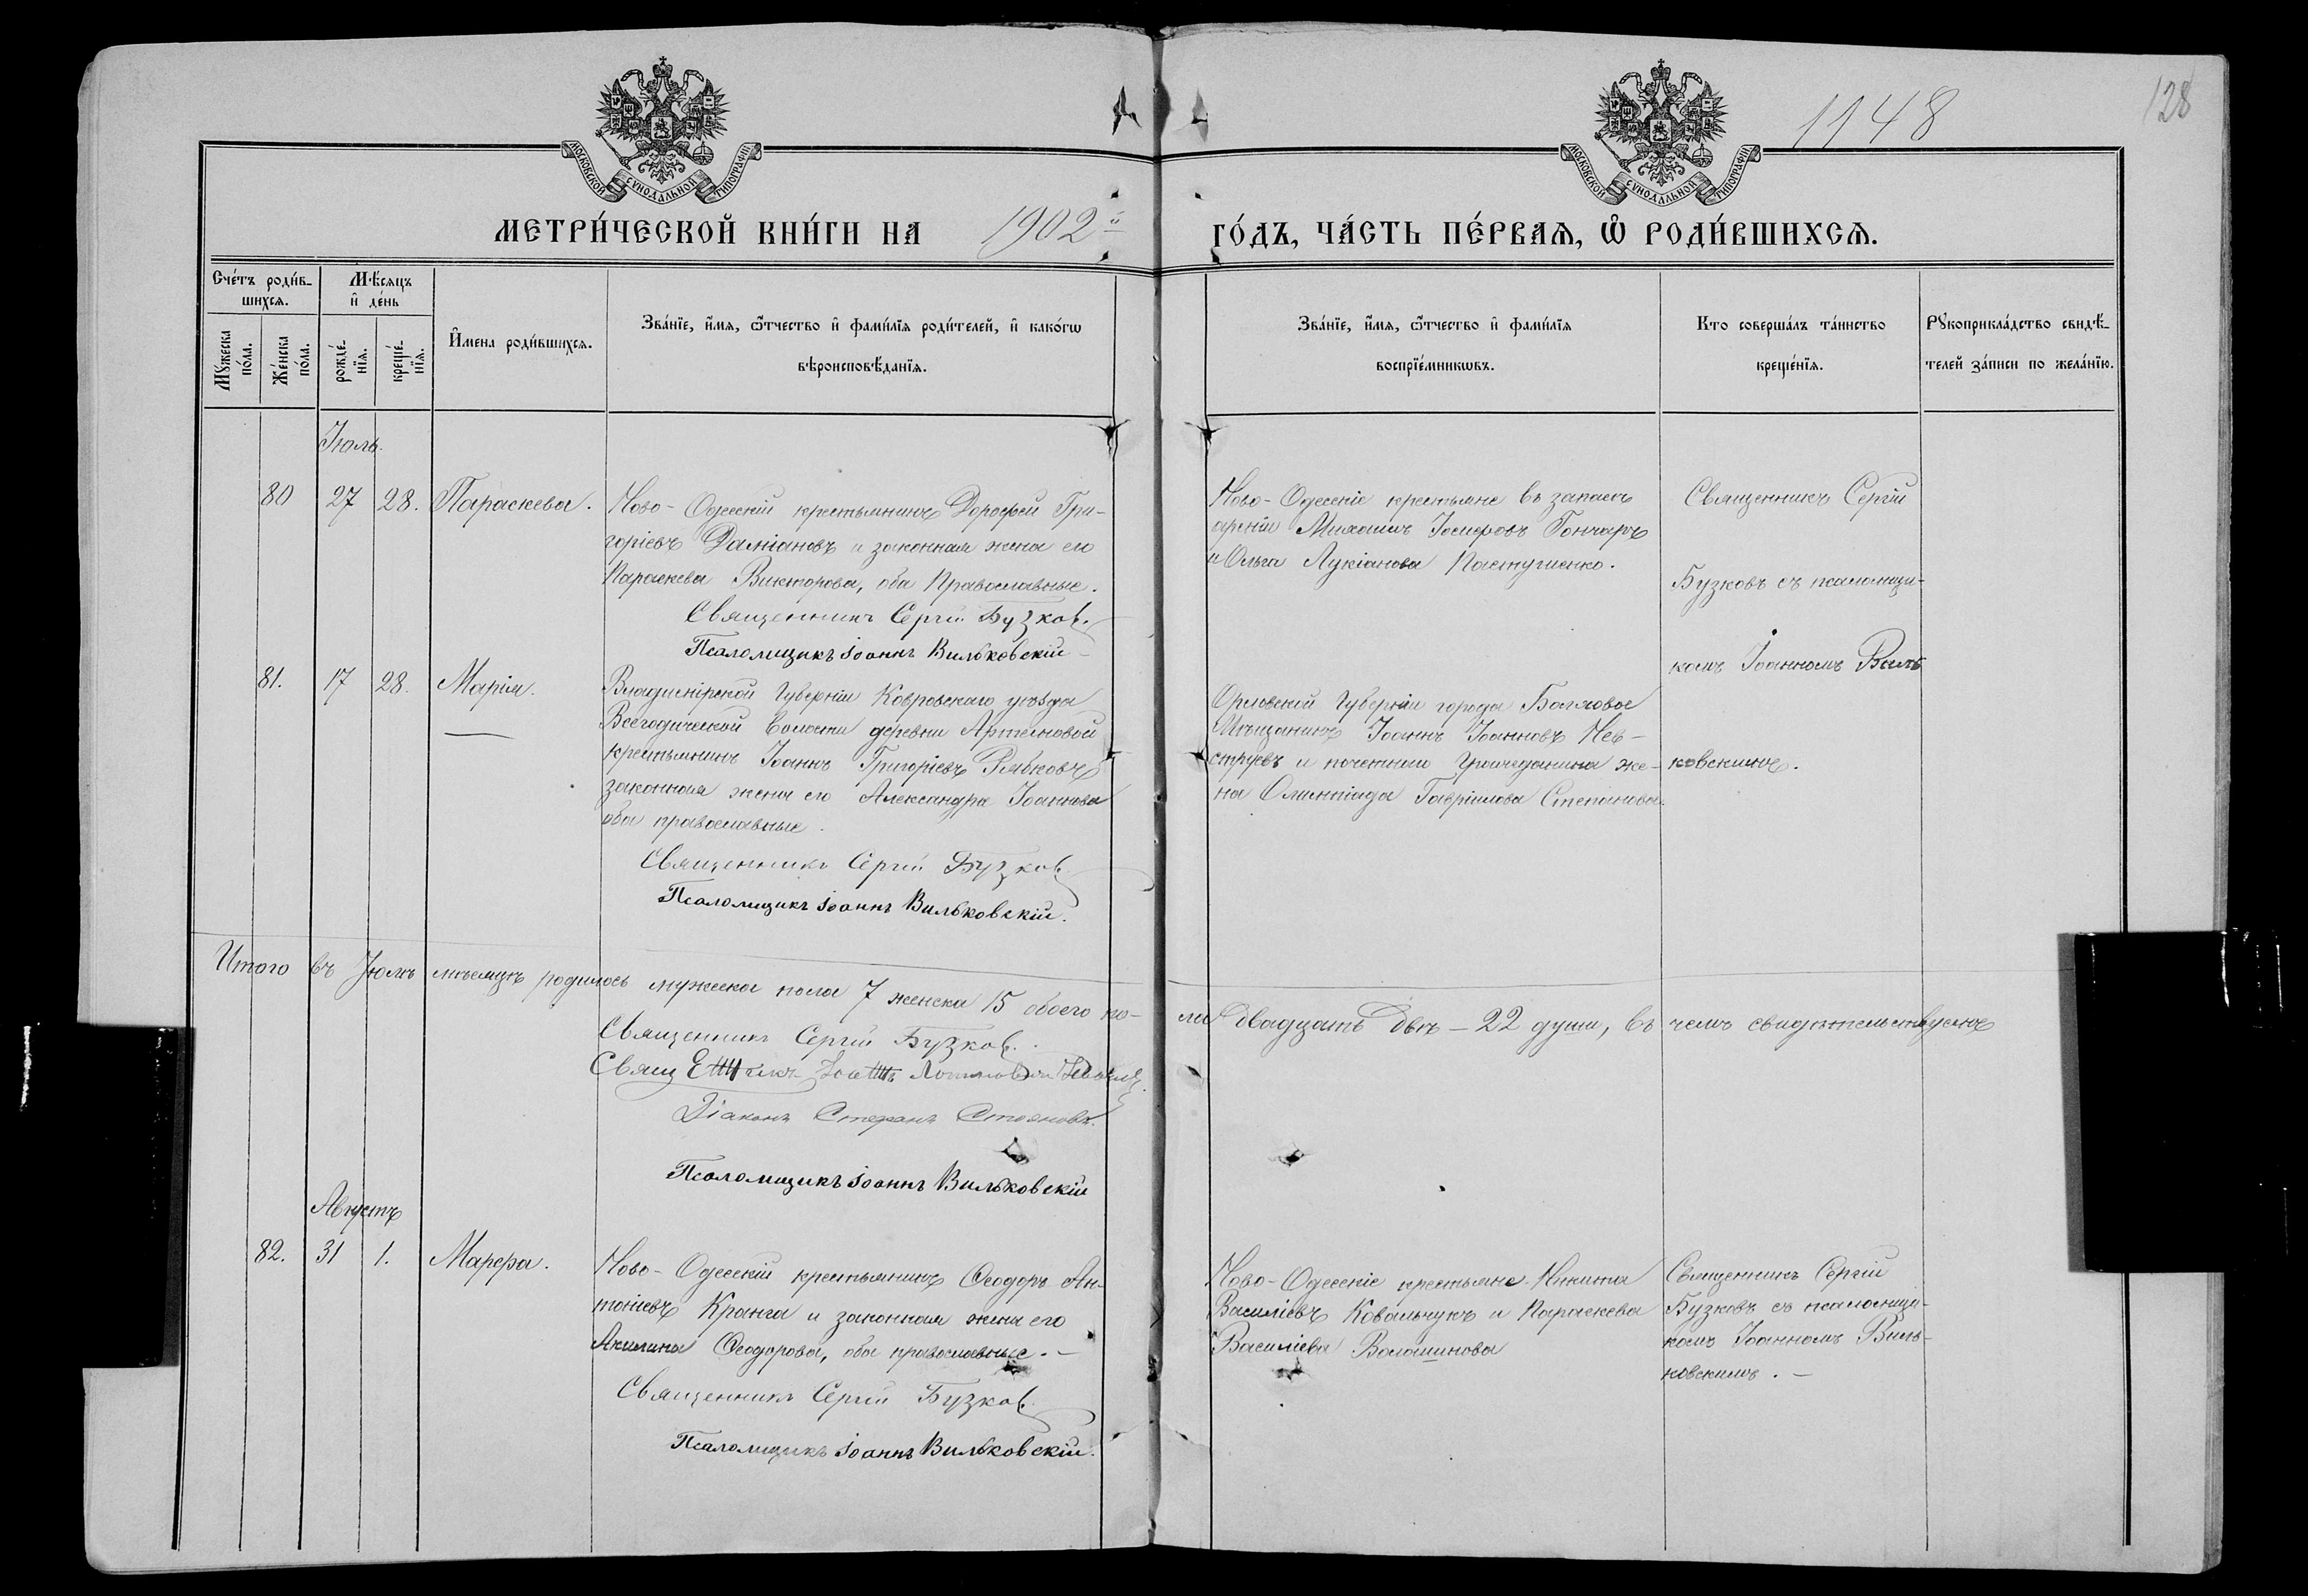 1148
128
МОСКОВСКОЙ СѴНОДАЛЬНОЙ ТИПОГРАФІИ
МОСКОВСКОЙ СѴНОДАЛЬНОЙ ТИПОГРАФІИ
МЕТРИ́ЧЕСКОЙ КНИ́ГИ НА 1902й ГО́ДЪ, ЧА́СТЬ ПЕ́РВАѦ, Ѡ҆ РОДИ́ВШИХСѦ.
Сче́тъ роди́в-
шихсѧ.
Мꙋжеска по́ла.
Же́нска по́ла.
Мѣ́сѧцъ
и҆ де́нь
рожде́-
нїѧ.
креще́-
нїѧ.
И҆мена роди́вшихсѧ.
Зва́нїе, и҆́мѧ, ѻ҆́тчество и҆ фами́лїѧ роди́телей, и҆ како́гѡ
вѣроисповѣ́данїѧ.
Зва́нїе, и҆́мѧ, ѻ҆́тчество и҆ фами́лїѧ
воспрїе́мникѡвъ.
Кто соверша́лъ та́инство
креще́нїѧ.
Рꙋкоприкла́дство свидѣ́-
телей за́писи по жела́нїю.
Іюль.
80 27 28. Параскева.
Ново-Одесскій крестьянинъ Дорофей Гри-
горіевъ Даміановъ и законная жена его
Параскева Викторова, оба Православные.
Священникъ Сергій Бузков.
Псаломщикъ Іоаннъ Вильковскій
Ново-Одесскіе крестьяне въ запасѣ
арміи Михаилъ Іосифовъ Гончаръ
и Ольга Лукіанова Пастушенко.
Священникъ Сергій
Бузковъ съ псаломщи-
комъ Іоанномъ Виль
ковскимъ.
81. 17 28. Марія.
Владимірской Губерніи Ковровскаго уѣзда
Всегодической волости деревни Артемовой
крестьянинъ Іоаннъ Григоріевъ Рябковъ
законная жена его Александра Іоаннова
оба православные.
Священникъ Сергій Бузков
Псаломщикъ Іоаннъ Вильковскій.
Орловской Губерніи города Болхова
Мѣщанинъ Іоаннъ Іоанновъ Нев-
струевъ и почетнаго Гражданина же-
на Олимпіада Гавріилова Степанова.
Итого въ Іюлѣ мѣсяцѣ родилось мужеска пола 7 женска 15 обоего по-
ла двадцать двѣ - 22 души, въ чемъ свидѣтельствуемъ
Священникъ Сергій Бузков.
Діаконъ Стефанъ Стояновъ.
Псаломщикъ Іоаннъ Вильковскій
Августъ
82. 31 1. Марфа.
Ново-Одесскій крестьянинъ Ѳеодоръ Ан-
тоніевъ Кранга и законная жена его
Акилина Ѳеодорова, оба православные. -
Священникъ Сергій Бузков
Псаломщикъ Іоаннъ Вильковскій.
Ново-Одесскіе крестьяне Никита
Василіевъ Ковальчукъ и Параскева
Василіева Волошинова
Священникъ Сергій
Бузковъ съ псаломщи-
комъ Іоанномъ Виль-
ковскимъ. -